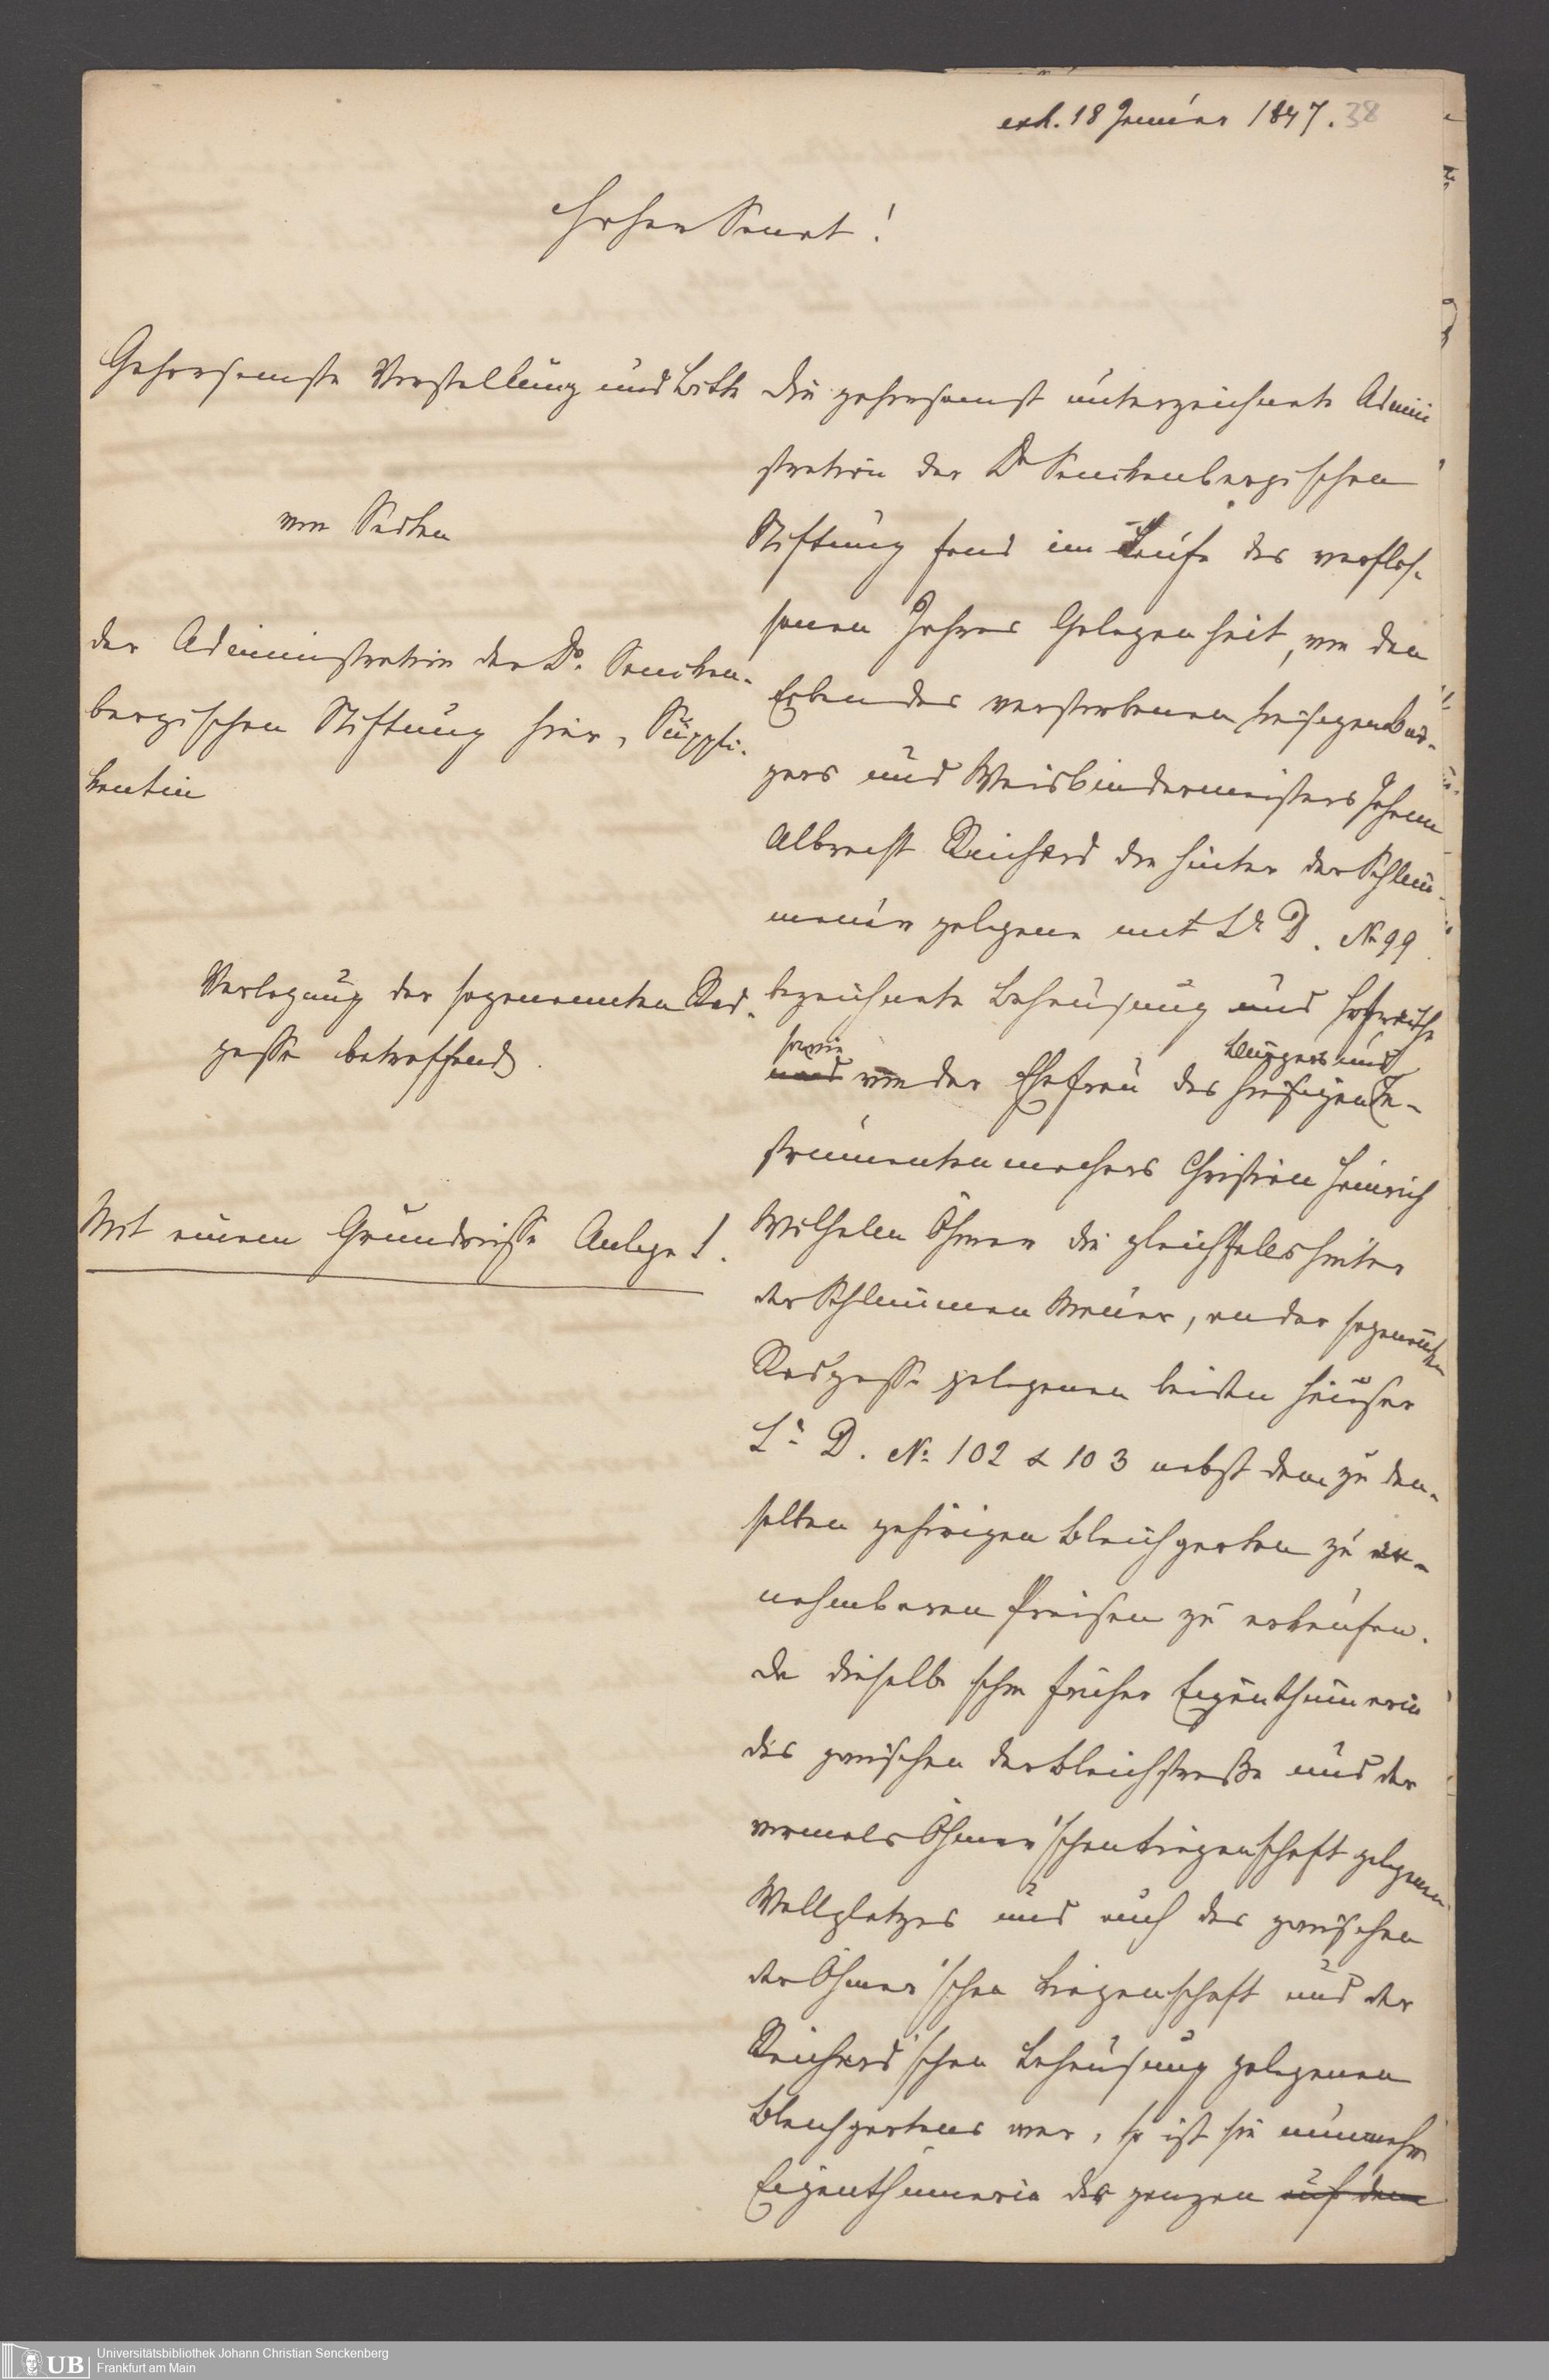 exh. 18 Januar 1847. 38
Hoher Senat!
Gehorsamste Vorstellung und Bitte
von Seiten
der Administration der Dr. Sencken-
bergischen Stiftung hier, Suppli-
kantin
Verlegung der sogenannten Rad-
gasse betreffend.
Mit einem Grundrisse Anlage 1.
Die gehorsamst unterzeichnete Admini
stration der Dr Senckenbergischen
Stiftung fand im Laufe des verflos-
senen Jahres Gelegenheit, von den
Erben des verstorbenen hiesigen Bür-
gers und Weisbindermeisters Johann
Albrecht Reichard die hinter der Schlim-
mauer gelegene mit Lr D. No 99
bezeichnete Behausung und Hofraithe
sowie
und von der Ehefrau des hiesigen In-
Bürgers und
strumentenmachers Christian Heinrich
Wilhelm Öhmer die gleichfalls hinter
der Schlimmen Mauer, an der sogenannten
Radgasse gelegenen beiden Häuser
Lr D. No 102 & 103 nebst dem zu den-
selben gehörigen Bleichgarten zu an-
nehmbaren Preisen zu erkaufen.
Da dieselbe schon früher Eigenthümerin
des zwischen der Bleichstraße und der
vormals Öhmer'schen Liegenschaft gelegenen
Wallplatzes und auch des zwischen
der Öhmer'schen Liegenschaft und der
Reichard'schen Behausung gelegenen
Bleichgartens war, so ist sie nunmehr
Eigenthümerin des ganzen auf dem